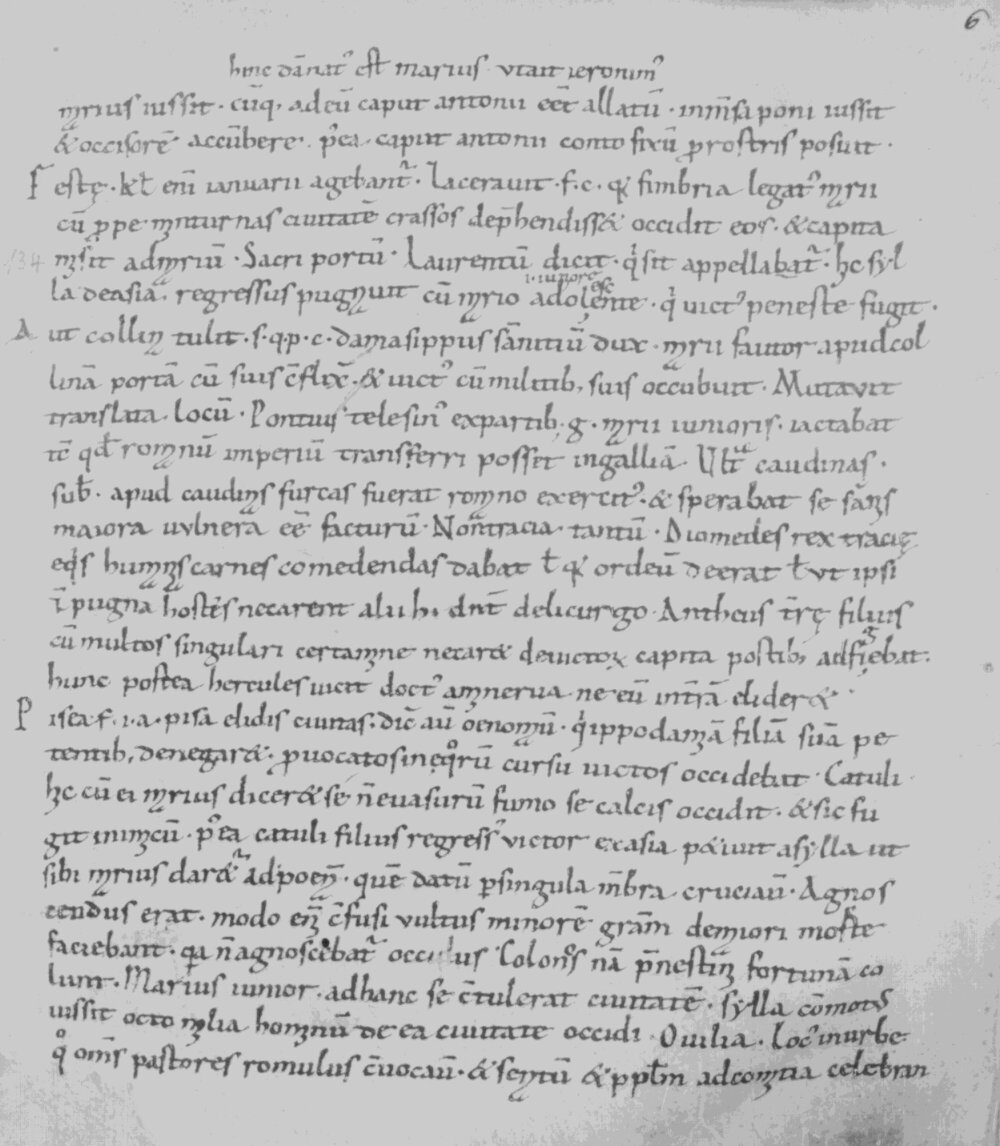 6
hinc dānat᾽ est marius · ut ait ieronim᾽
marius iussit · cūq; ad eū caput antonii eēt allatū · in mēsa poni iussit
& occisorē accūbere · p᾽ea caput antonii conto fixū p rostris posuit ·
Festę · kł enī ianuarii agebant᾽ · Laceravit · f · c · qđ fimbria legat᾽ marii
cū ppe minturnas ciuitatē crassos dep̄hendiss& occidit eos · & capita
134 misit ad mariū · Sacri portū · Laurentū dicit · q sit appellabat᾽ · hic syl
la de asia regressus pugnauit cū mario adolescente · q uict᾽ peneste fugit ·
i · iuniore
Aut collina tulit · s · q · p · c · damasippus sānitiū dux · marii fautor apud col
linā portā cū suis c̄flix̄ · & uict᾽ cū militib; suis occubuit · Mutavit
translata · locū · Pontius telesin᾽ ex partib; g · marii iunioris · iactabat
tē qđ romanū imperiū transferri posset in galliā · Ult᾽ caudinas ·
sub · apud caudinas furcas fuerat romano exercit᾽ · & sperabat se
maiora uulnera eē facturū · Non tracia tantū · Diomedes rex tracię
eqis humanas carnes comedendas dabat ł qđ ordeū deerat ł ut ipsi
ī pugna hostes necarent alii h dnt̄ de licurgo · Antheus t̄rę filius
cū multos singulari certamine necar& deuictoꝝ capita postib; adfigebat ·
hunc postea hercules uicit doct᾽ a minerua ne eū int᾽rā elider& ·
Pisea · f · i · a · pisa elidis ciuitas · dic̄ aū oenomaū · q ippodamiā filiā suā pe
tentib; denegar& · puocatos in equorū cursu uictos occidebat · Catuli ·
hic cū ei marius dicer& se n̄ euasurū fumo se calcis occidit · & sic fu
git inimicū · p᾽ea catuli filius regress᾽ victor ex asia petiuit a sylla ut
sibi marius dar&᾽ ad poenā · quē datū p singula mēbra cruciaū · Agnos
cendus erat · modo enī c̄fusi vultus minorē grām de maiori
faciebant · qa n̄ agnoscebat᾽ occisus Colonos nā p̄nestinā fortunā co
lunt · Marius iunior · ad hanc se c̄tulerat ciuitatē · sylla cōmotus
iussit octo milia hominū de ea ciuitate occidi · Ovilia · loc᾽ in urbe ·
q° om̄s pastores romulus c̄uocaū · & senatū & pplm ad comitia celebran